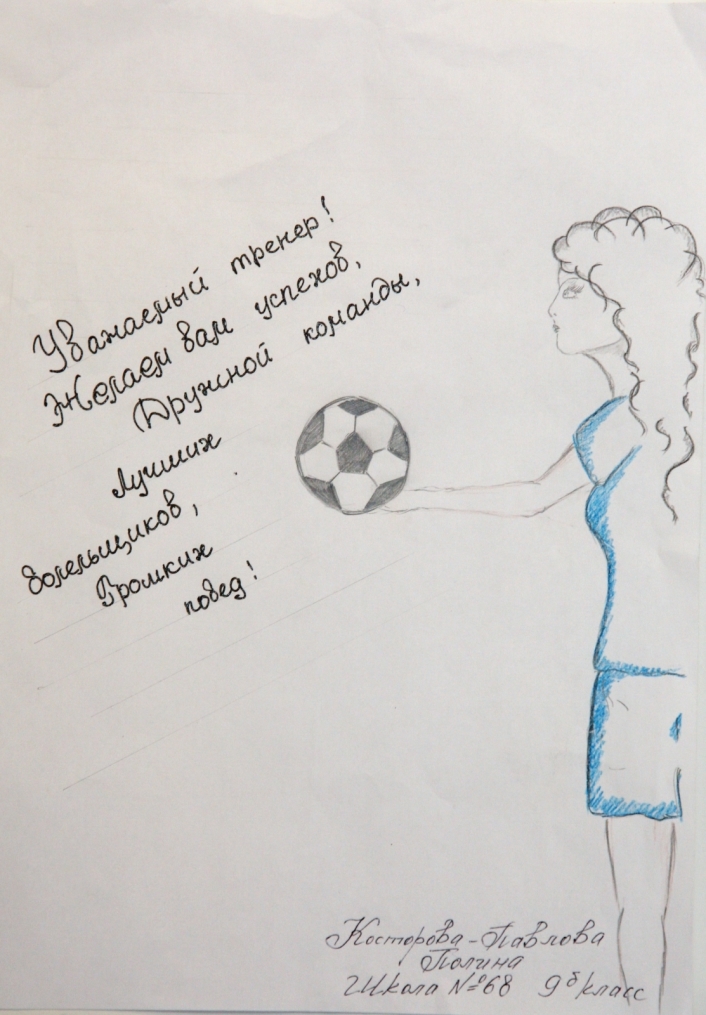 Уважаемый тренер!
Желаем вам успехов,
Дружной команды,
Лучших
болельщиков,
Громких
побед!
Косторова-Павлова
Полина
Школа №68 9б класс